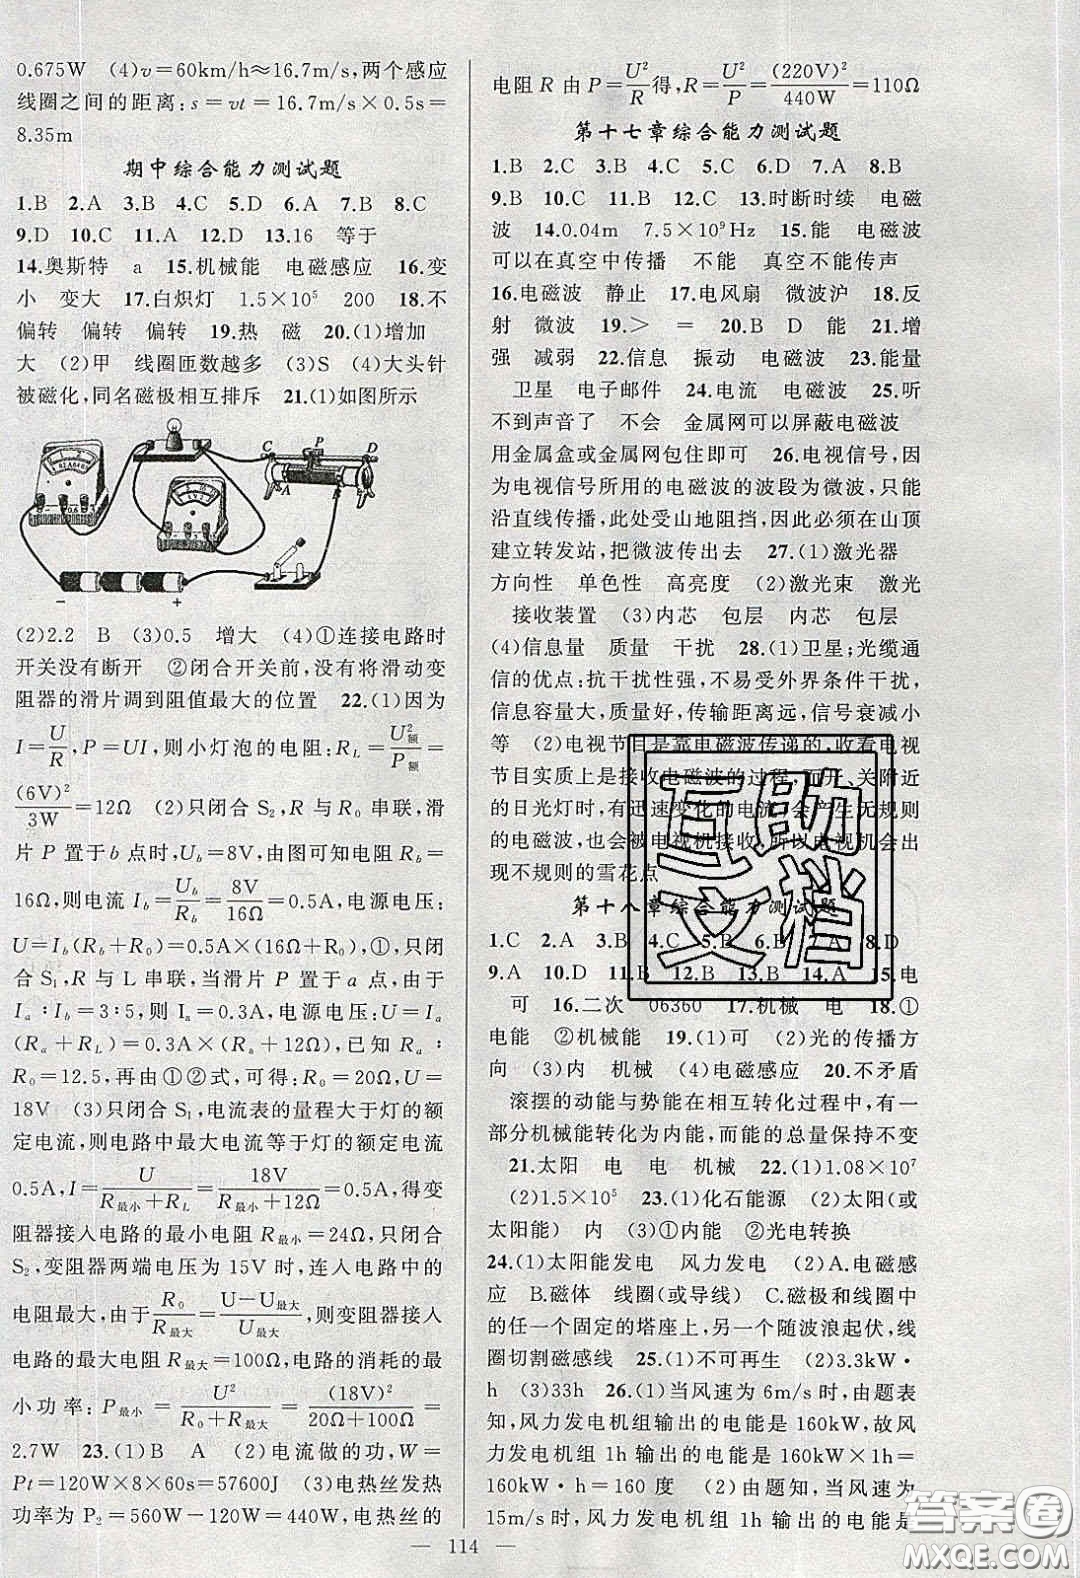 0.675W (4)v=60km/h≈16.7m/s,两个感应
线圈之间的距离:s=vt=16.7m/s×0.5s=
8.35m
期中综合能力测试题
1.B 2.A 3.B 4.C 5.D 6.B 7.B 8.C
9.D 10.C 11.A 12.D 13.16 等于
14.奥斯特 a 15.机械能 电磁感应 16.变
小 变大 17.白炽灯 1.5×10⁵ 200 18.不
偏转 偏转 偏转 19.热 磁 20.(1)增加
大 (2)甲 线圈匝数越多 (3)S (4)大头针
被磁化,同名磁极相互排斥 21.(1)如图所示
C P D
A
− +
(2)2.2 B (3)0.5 增大 (4)①连接电路时
开关没有断开 ②闭合开关前,没有将滑动变
阻器的滑片调到阻值最大的位置 22.(1)因为
I=U/R,P=UI,则小灯泡的电阻:R_L=U²额/P额=
(6V)²/3W=12Ω (2)只闭合 S₂,R 与 R₀ 串联,滑
片 P 置于 b 点时,U_b=8V,由图可知电阻 R_b=
16Ω,则电流 I_b=U_b/R_b=8V/16Ω=0.5A,电源电压:
U=I_b(R_b+R₀)=0.5A×(16Ω+R₀),①,只闭
合 S₁,R 与 L 串联,当滑片 P 置于 a 点,由于
I_a∶I_b=3∶5,则 I_a=0.3A,电源电压:U=I_a
(R_a+R_L)=0.3A×(R_a+12Ω),②,已知 R_a∶
R₀=12.5,由①②式,可得:R₀=20Ω,U=
18V (3)只闭合 S₁,电流表的量程大于灯的额
定电流,则电路中最大电流等于灯的额定电流
0.5A,I=U/(R最小+R_L)=18V/(R最小+12Ω)=0.5A,得变
阻器接入电路的最小电阻 R最小=24Ω,只闭合
S₂,变阻器两端电压为 15V 时,连入电路中的
电阻最大,由于R₀/R最大=(U−U最大)/U最大,则变阻器接入
电路的最大电阻 R最大=100Ω,电路的消耗的最
小功率:P最小=U²/(R₀+R最大)=(18V)²/(20Ω+100Ω)=
2.7W 23.(1)B A (2)电流做的功,W=
Pt=120W×8×60s=57600J (3)电热丝发热
功率为 P₂=560W−120W=440W,电热丝的
电阻 R 由 P=U²/R得,R=U²/P=(220V)²/440W=110Ω
第十七章综合能力测试题
1.B 2.C 3.C 4.C 5.C 6.D 7.A 8.B
9.B 10.C 11.B 12.C 13.时断时续 电磁
波 14.0.04m 7.5×10⁹Hz 15.能 电磁波
可以在真空中传播 不能 真空不能传声
16.电磁波 静止 17.电风扇 微波炉 18.反
射 微波 19.＞ = 20.B D 能 21.增
强 减弱 22.信息 振动 电磁波 23.能量
卫星 电子邮件 24.电流 电磁波 25.听
不到声音了 不会 金属网可以屏蔽电磁波
用金属盒或金属网包住即可 26.电视信号,因
为电视信号所用的电磁波的波段为微波,只能
沿直线传播,此处受山地阻挡,因此必须在山顶
建立转发站,把微波传出去 27.(1)激光器
方向性 单色性 高亮度 (2)激光束 激光
接收装置 (3)内芯 包层 内芯 包层
(4)信息量 质量 干扰 28.(1)卫星;光缆通
信的优点:抗干扰性强,不易受外界条件干扰,
信息容量大,质量好,传输距离远,信号衰减小
等 (2)电视节目是靠电磁波传递的,收看电视
节目实质上是接收电磁波的过程,而开、关附近
的日光灯时,有迅速变化的电流,会产生无规则
的电磁波,也会被电视机接收,所以电视机会出
现不规则的雪花点
第十八章综合能力测试题
1.C 2.A 3.B 4.C 5.B 6.B A 8.D
9.A 10.D 11.B 12.B 13.B 14.A 15.电
可 16.二次 06360 17.机械 电 18.①
电能 ②机械能 19.(1)可 (2)光的传播方
向 (3)内 机械 (4)电磁感应 20.不矛盾
滚摆的动能与势能在相互转化过程中,有一
部分机械能转化为内能,而能的总量保持不变
21.太阳 电 电 机械 22.(1)1.08×10⁷
(2)1.5×10⁵ 23.(1)化石能源 (2)太阳(或
太阳能) 内 (3)①内能 ②光电转换
24.(1)太阳能发电 风力发电 (2)A.电磁感
应 B.磁体 线圈(或导线) C.磁极和线圈中
的任一个固定的塔座上,另一个随波浪起伏,线
圈切割磁感线 25.(1)不可再生 (2)3.3kW·
h (3)33h 26.(1)当风速为 6m/s 时,由题表
知,风力发电机组输出的电能是 160kW,故风
力发电机组 1h 输出的电能是 160kW×1h=
160kW·h=160 度 (2)由题知,当风速为
15m/s 时,风力发电机组 1h 输出的电能是
互助
文档
答案圈
MXQE.COM
114